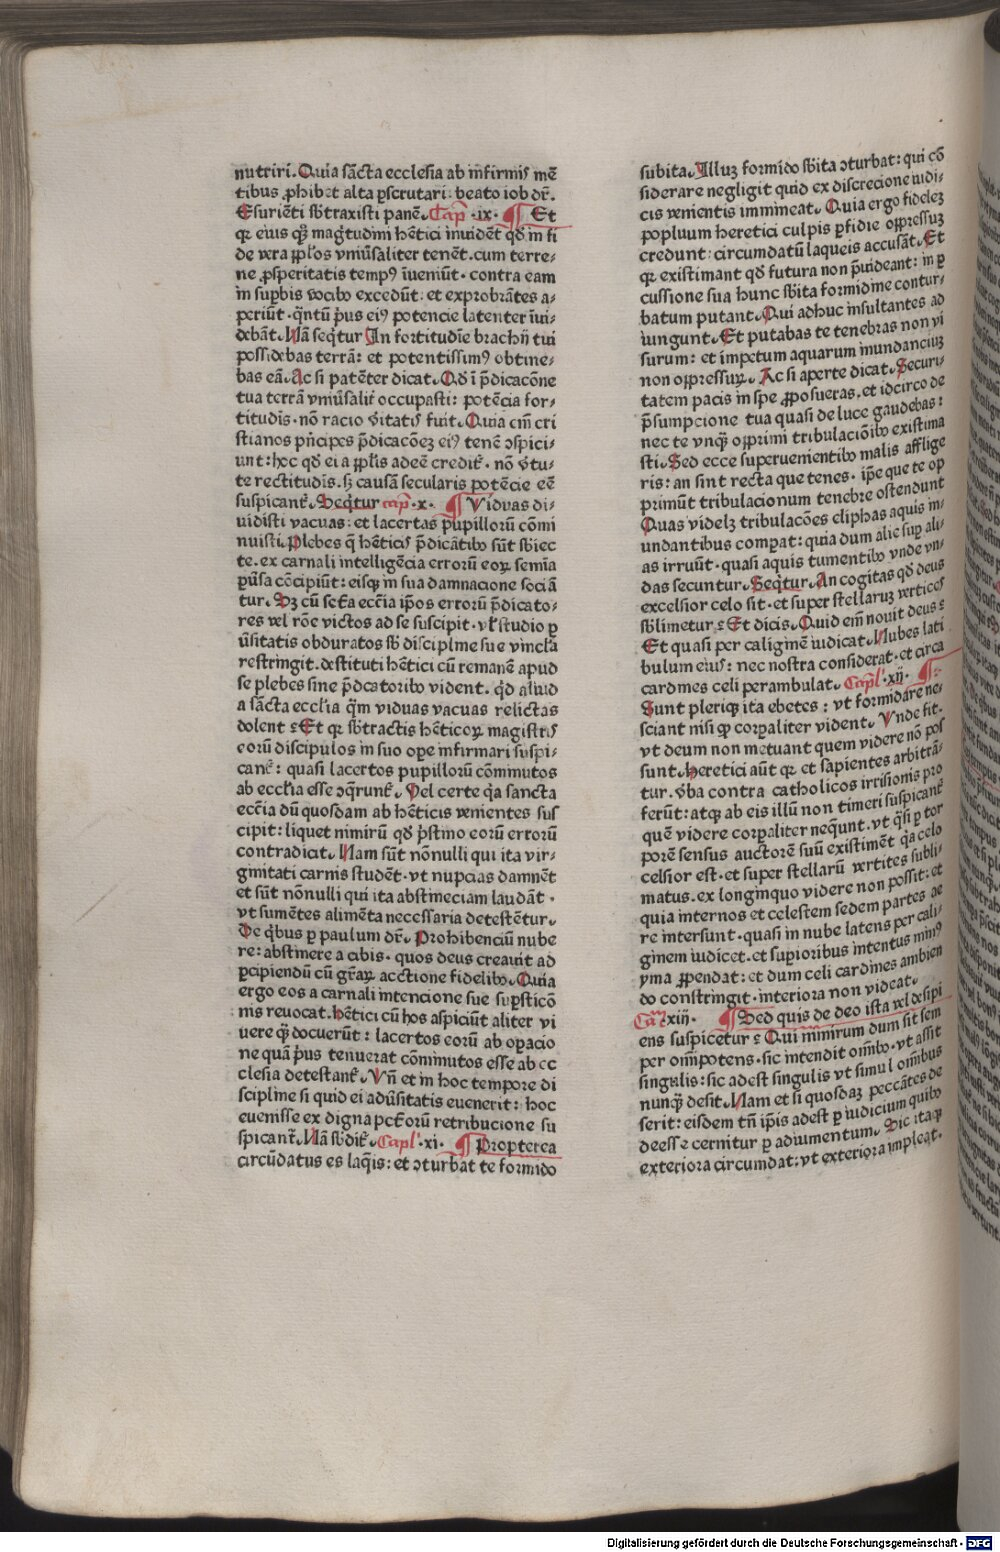 nutriri. Quia sācta ecclesia ab infirmis mē
tibus ꝓhibet alta ꝑscrutari: beato iob dr̄.
Esuriēti sb̄traxisti panē. Cap̄ .ix. ¶ Et
qꝛ eius qꝫ magr̄tudini hētici inuidēt qd̄ in fi
de vera ꝓpl̄os vniūsaliter tenēt. cum terre⸗
ne ꝓsperitatis tempꝰ īueniūt. contra eam
in suꝑbis vocibꝰ excedūt: et exprobrātes a⸗
periūt. qūtū pͥus eiꝰ potencie latenter īui⸗
debāt. Nā seqͥtur In fortitudīe brachij tui
possidebas terrā: et potentissimꝰ obtine⸗
bas eā. Ac si patēter dicat. Qd̄ ī p̄dicacōne
tua terrā vniūsalit̄ occupasti: potēcia for⸗
titudīs. nō racio v̄itatis fuit. Quia cū cri
stianos pͥncipes p̄dicacōeꝫ eiꝰ tenē ↄspici⸗
unt: hoc qd̄ ei a ꝓpl̄is adeē credit̄. nō v̄tu⸗
te rectitudīs. sꝫ causā secularis potēcie eē
suspicant̄. Seqͥtur cap̄ .x. ¶ Viduas di⸗
uidisti vacuas: et lacertas pupillorū cōmi
nuisti. Plebes q̄ hēticis p̄dicātibꝰ sūt sb̄iec
te. ex carnali intelligēcia errorū eoꝝ semīa
ꝑūsa cōcipiūt: eisqꝫ in sua damnacione sociā
tur. Sꝫ cū sc̄tā ecc̄ia ip̄os errorū p̄dicato⸗
res vel rōe victos ad se suscipit. vl̄ studio ꝑ
ūsitatis obduratos sb̄ disciplīne sue vincl̄a
restringit. destituti hētici cū remanē apud
se plebes sine p̄dcatoribꝰ vident. qd̄ aliud
a sācta ecclīa qͣm viduas vacuas relictas
dolent ꝛ Et qꝛ sb̄tractis hēticoꝝ magistris
eorū discipulos in suo oꝑe infirmari suspi⸗
cant̄: quasi lacertos pupillorū cōmīutos
ab ecclīa esse ↄqͥrunt̄. Vel certe qͣ sancta
ecc̄ia dū quosdam ab hēticis venientes sus
cipit: liquet nimirū qd̄ pͥstino eorū errorū
contradicit. Nam sūt nōnulli qui ita vir⸗
ginitati carnis studēt. vt nupcias damnēt
et sūt nōnulli qui ita abstineciam laudāt.
vt sumētes alimēta necessaria detestētur.
De qͥbus ꝑ paulum dr̄. Prohibenciū nube
re: abstinere a cibis. quos deus creauit ad
ꝑcipiendū cū gr̄aꝝ acctione fidelibꝰ. Quia
ergo eos a carnali intencione sue suꝑsticō
nis reuocat. hētici cū hos aspiciūt aliter vi
uere qͣ docuerūt: lacertos eorū ab oꝑacio
ne quā pͥus tenuerat cōmīutos esse ab ec
clesia detestant̄. Vn̄ et in hoc tempore di
scipline si quid ei adūsitatis euenerit: hoc
euenisse ex digna pctōrū retribucione su
spicant̄. Nā sb̄dit̄. Capl̓ .xi. ¶ Propterea
circūdatus es laqͥis: et ↄturbat te formido
subita. Illuꝫ formido sb̄ita ↄturbat: qui cō
siderare negligit quid ex discrecione iudi⸗
cis venientis immineat. Quia ergo fideleꝫ
popluum heretici culpis ꝑfidie oppressuꝫ
credunt: circumdatū laqueis accusāt. Et
qꝛ existimant qd̄ futura non p̄uideant: in ꝑ
cussione sua hunc sb̄ita formidine contur⸗
batum putant. Qui adhuc insultantes ad
iungunt. Et putabas te tenebras non vi
surum: et impetum aquarum inundanciuꝫ
non oppressuꝝ. Ac si aperte dicat. Securi⸗
tatem pacis in spe ꝓposueras. et idcirco de
p̄sumpcione tua quasi de luce gaudebas:
nec te vnqͣ opprimi tribulaciōibꝰ existima
sti. Sed ecce superuenientibꝰ malis afflige
ris: an sint recta que tenes. ip̄e que te op
primūt tribulacionum tenebre ostendunt
Quas videlꝫ tribulacōes eliphas aquis in⸗
undantibus comꝑat: quia dum alie suꝑ ali⸗
as irruūt. quasi aquis tumentibꝰ vnde vn⸗
das secuntur. Seqͥtur. An cogitas qd̄ deus
excelsior celo sit. et super stellaruꝫ vertices
sb̄limetur ꝛ Et dicis. Quid em̄ nouit deus ꝛ
Et quasi per caliginē iudicat. Nubes lati
bulum eius: nec nostra considerat. et circa
cardines celi perambulat. Capl̓ .xij. ¶
Sunt pleriqꝫ ita ebetes: vt formidare nes
sciant nisi qd̄ corꝑaliter vident. Vnde fit.
vt deum non metuant quem videre nō pos
sunt. heretici aūt qꝛ et sapientes arbitrā⸗
tur. v̄ba contra catholicos irrisionis pro
ferūt: atqꝫ ab eis illū non timeri suspicant̄
quē videre corꝑaliter neqͥunt. vt qͣsi ꝑ tor
porē sensus auctorē suū existimēt qͣ celo
celsior est. et super stellarū vertites subli⸗
matus. ex longinquo videre non possit: et
quia internos et celestem sedem partes ae
re intersunt. quasi in nube latens per cali⸗
ginem iudicet. et suꝑioribus intentus minꝰ
yma ꝓpendat: et dum celi cardines ambien
do constringit. interiora non videat.
Cam̄ xiij. ¶ Sed quis de deo ista vel desipi
ens suspicetur ꝛ Qui nimirum dum sit sem
per om̄potens. sic intendit om̄ibꝰ. vt assit
singulis: sic adest singulis vt simul om̄ibus
nunqͣ desit. Nam et si quosdaꝫ peccātes de
serit: eisdem tn̄ ip̄is adest ꝑ iudicium quibꝰ
deesse cernitur ꝑ adiumentum. Sic itaqꝫ
exteriora circumdat: vt exteriora impleat.
Digitalisierung gefördert durch die Deutsche Forschungsgemeinschaft - DFG